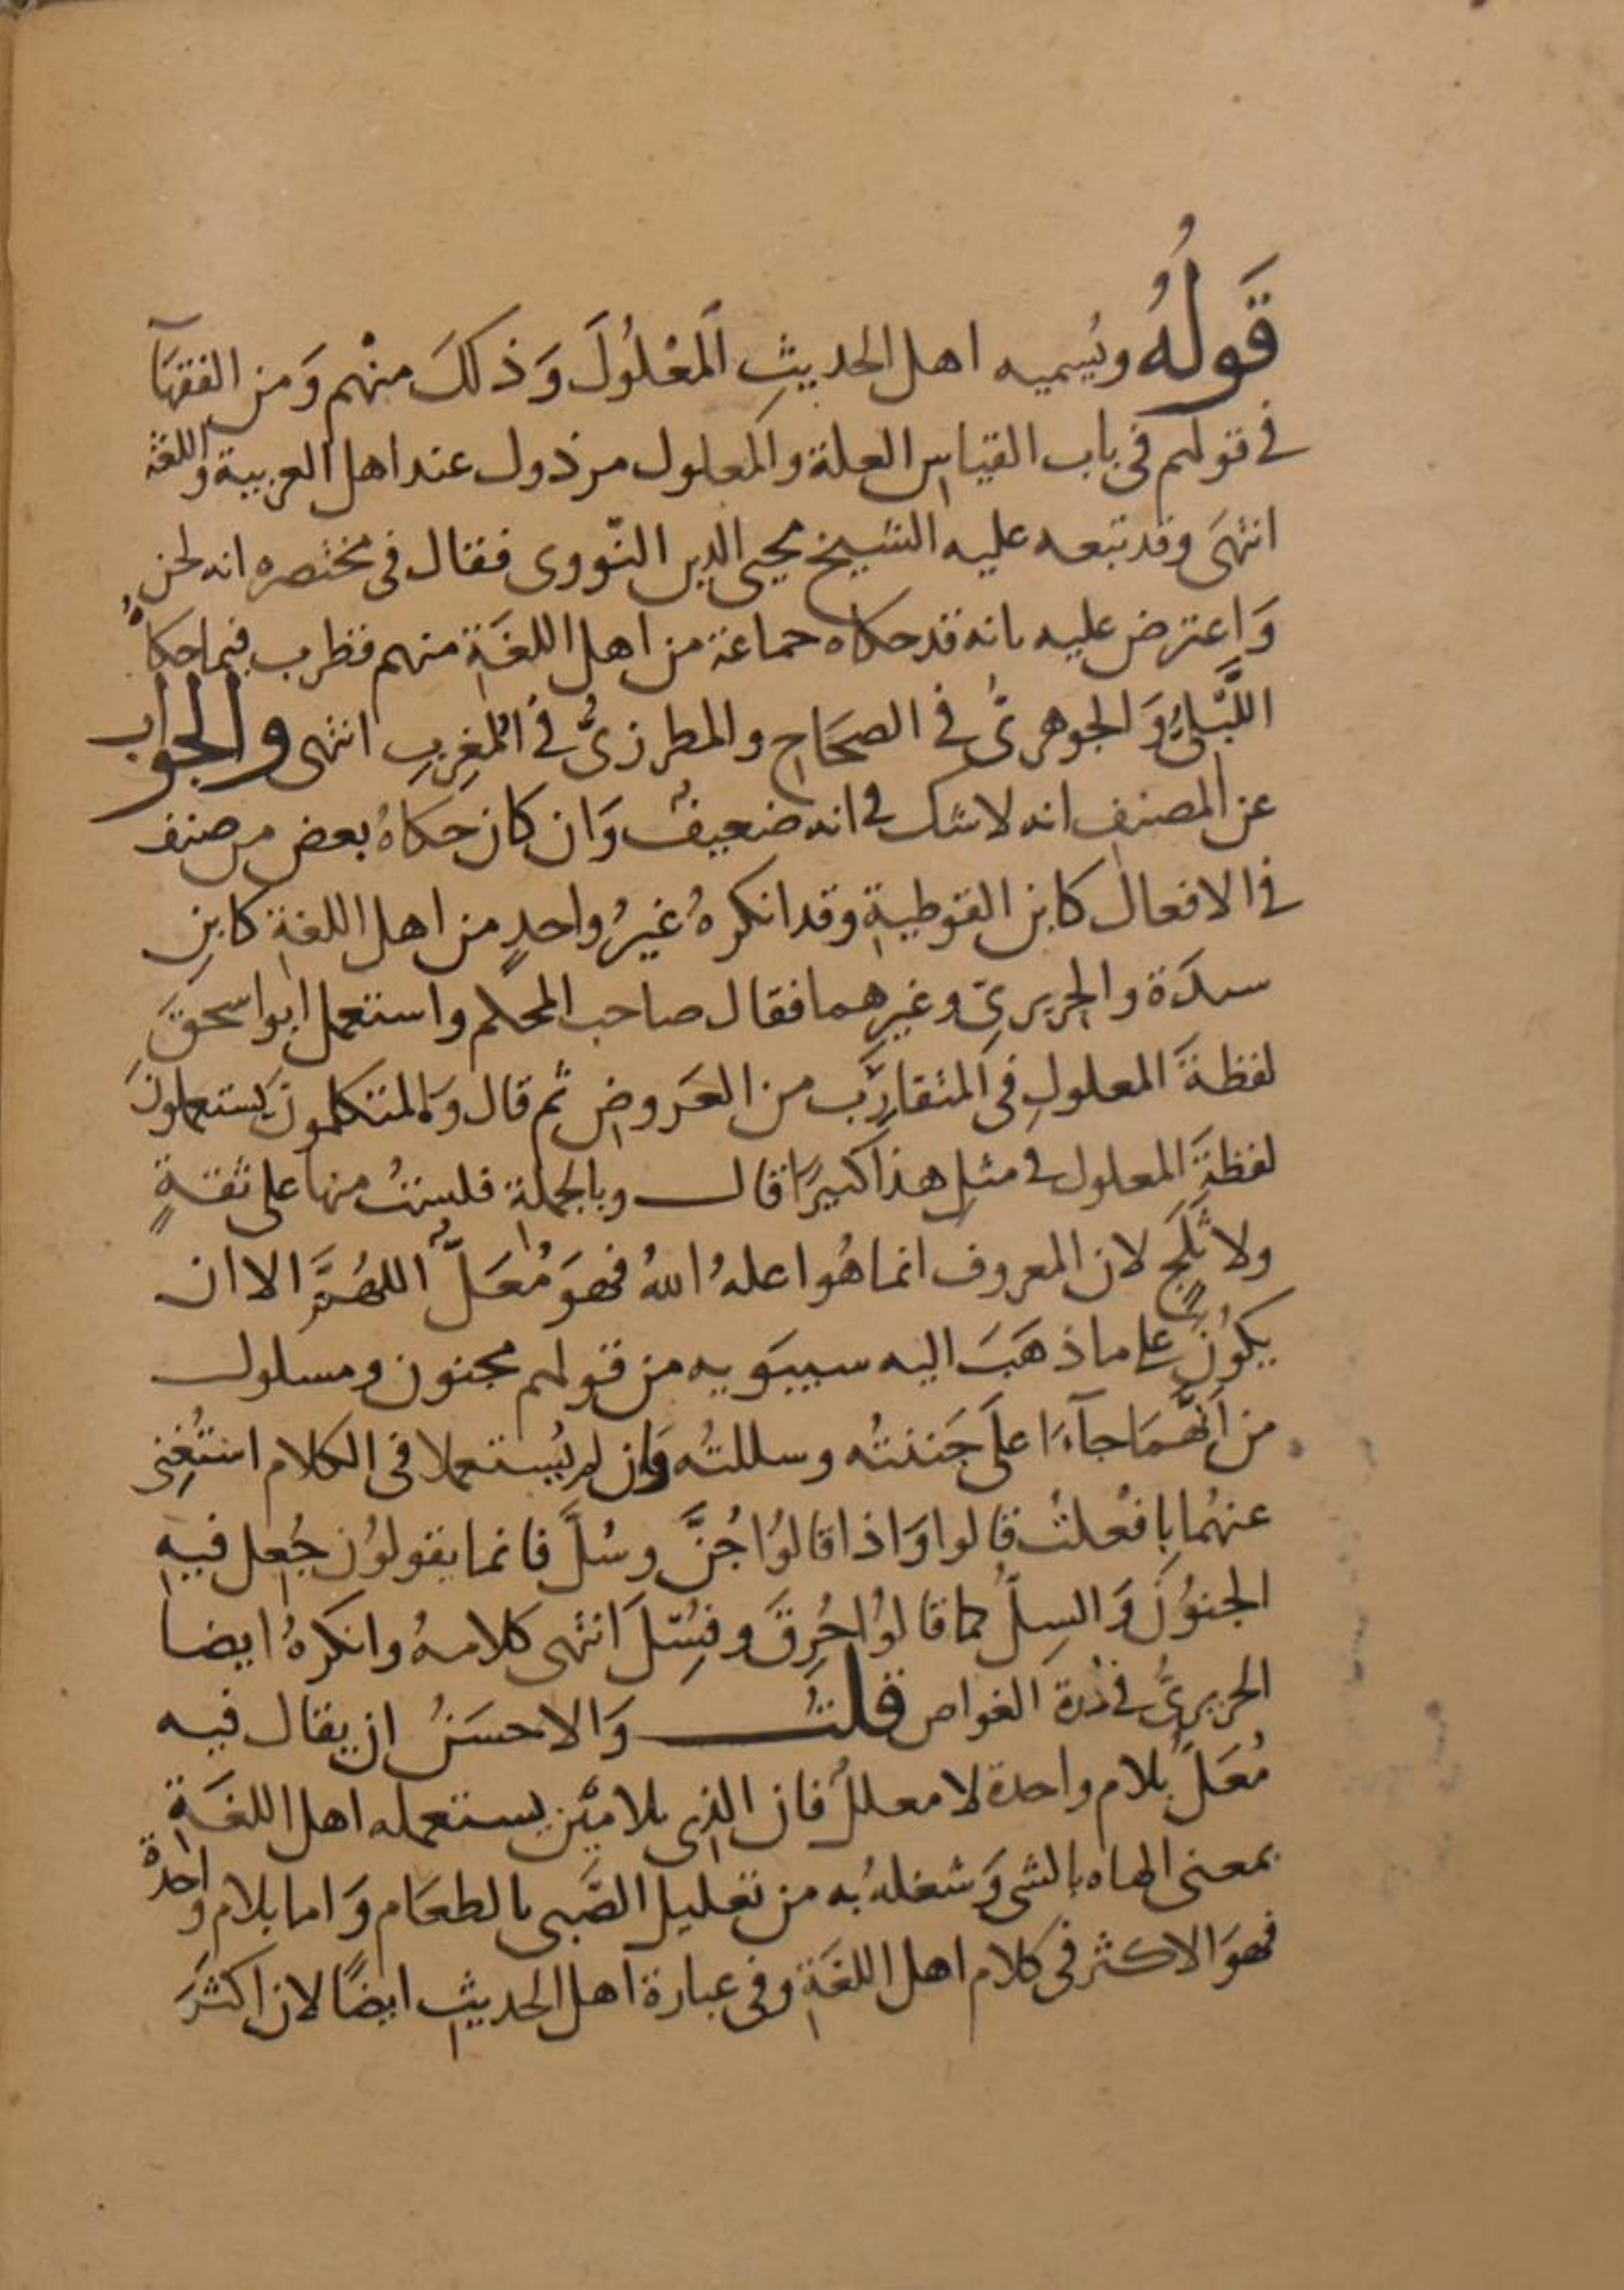 قَولُهُ ويُسميه اهل الحديثِ اَلمَعْلُولَ وَذلكَ منْهم وَمن الفقهَآ
في قولهم في باب القياسِ العلة والمعلول مرذول عند اهل العربية واللغة
انتهىَ وقد تبعه عليه الشيخ محيي الدين النّووى فقال في مختصره انه لحن
وَاعترض عليه بانه قد حكاه جماعة من اهل اللغَةِ منهم قطرب فيما حكاهُ
اللَّبْليُّ وَالجوهرىُّ في الصحَاحِ والمطرزىُّ في المُغِربِ انتهى والجوابُ
عن المصنفِ انه لاشك في انه ضعيفٌ وَان كان حكاهُ بعض من صنف
في الافعال كابن القوطيةِ وقد انكرهُ غيرُ واحدٍ من اهل اللغةِ كابنِ
سيدَة والحريريّ وغيرِهما فقال صاحب المحكم واستعمل ابو اسحقَ
لفظةَ المعلولِ في المتقارِب من العَروضِ ثم قال وَالمتكلمونَ يَستعملونَ
لفظةَ المعلول في مثلِ هذا كثيرًا قال وبالجملة فلستُ منها على ثقةٍ
ولا ثَلَجٍ لان المعروف انما هُو اعلهُ اللهُ فهوَ مُعَلٌّ اللهُمَّ الا ان
يكوُنَ على ما ذهَبَ اليه سيبَويه من قولهم مجنون ومسلول
من اَنَّهمَا جآءَا علَى جَننتُه وسللتُه وَان لم يُستعملا في الكلام استُغِنى
عنهُما بِافعْلتُ قالوا وَاذا قالُوا جُنَّ وسُلَّ فانما يقولوُن جُعِل فيهِ
الجنوُنُ وَالسِلُّ كما قالوُا حُرِقَ وفُسِّلَ انتهى كلامهُ وانكرهُ ايضا
الحريرىُّ في دُرة الغواص قلتُ وَالاحسَنُ ان يقال فيه
مُعَلٌّ بلام واحدة لا معللٌ فان الذى بلامَيْنِ يستعمله اهل اللغَةِ
بمعنى الهاه بالشى وَشغلهُ به من تعليلِ الصَّبى بالطعَام وَاما بلام واحدةْ
فهوَ الاكثر في كلام اهل اللغَةِ وفي عبارة اهل الحديثِ ايضًا لان اكثرَ